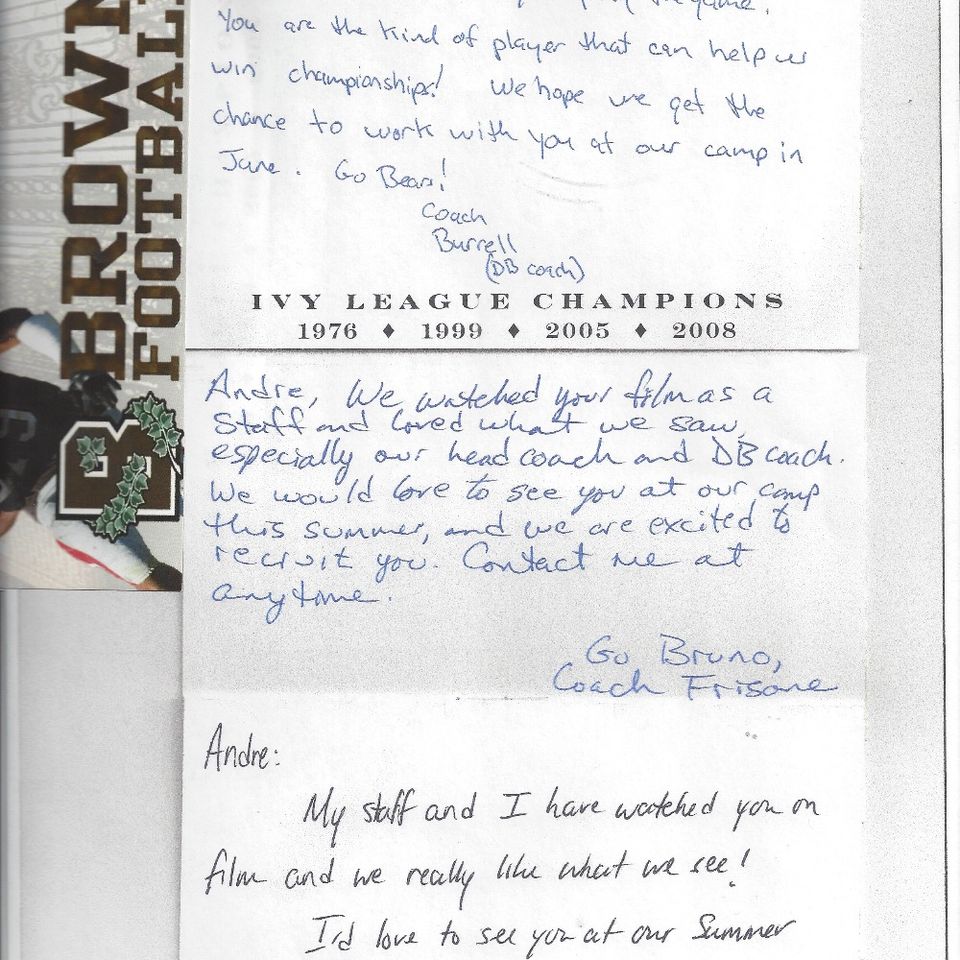 BROWN
FOOTBALL
the game.
You are the kind of player that can help us
win championships! We hope we get the
chance to work with you at our camp in
June. Go Bears!
Coach
Burrell
(DB coach)
IVY LEAGUE CHAMPIONS
1976 ♦ 1999 ♦ 2005 ♦ 2008
B
Andre, We watched your film as a
Staff and loved what we saw,
especially our head coach and DB coach.
We would love to see you at our camp
this summer, and we are excited to
recruit you. Contact me at
anytime.
Go Bruno,
Coach Frisone
Andre:
My staff and I have watched you on
film and we really like what we see!
I'd love to see you at our Summer